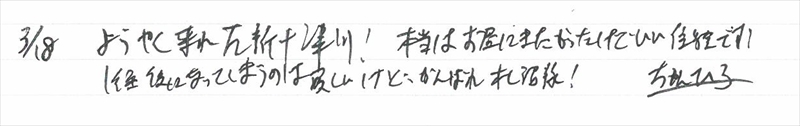 3/18 ようやく来れた新十津川！本当はお昼にきたかったけどいい住路です！
1往復になってしまうのは哀しいけど、がんばれ札沼線！ ちかひろ